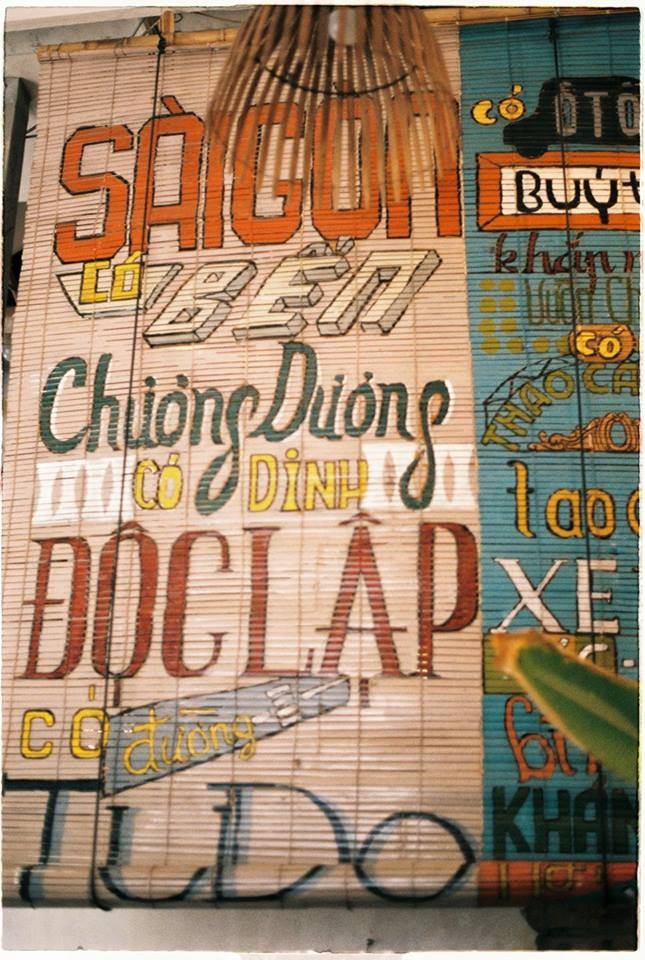 SÀIGON
CÓ BẾN
Chương Dương
CÓ DINH
ĐỘC LẬP
CÓ đường
TỰ DO
CÓ ÔTÔ
BUÝT
khắp
Vườn Ch
CÓ
THẢO CẦ
tao
XE
KHÁN